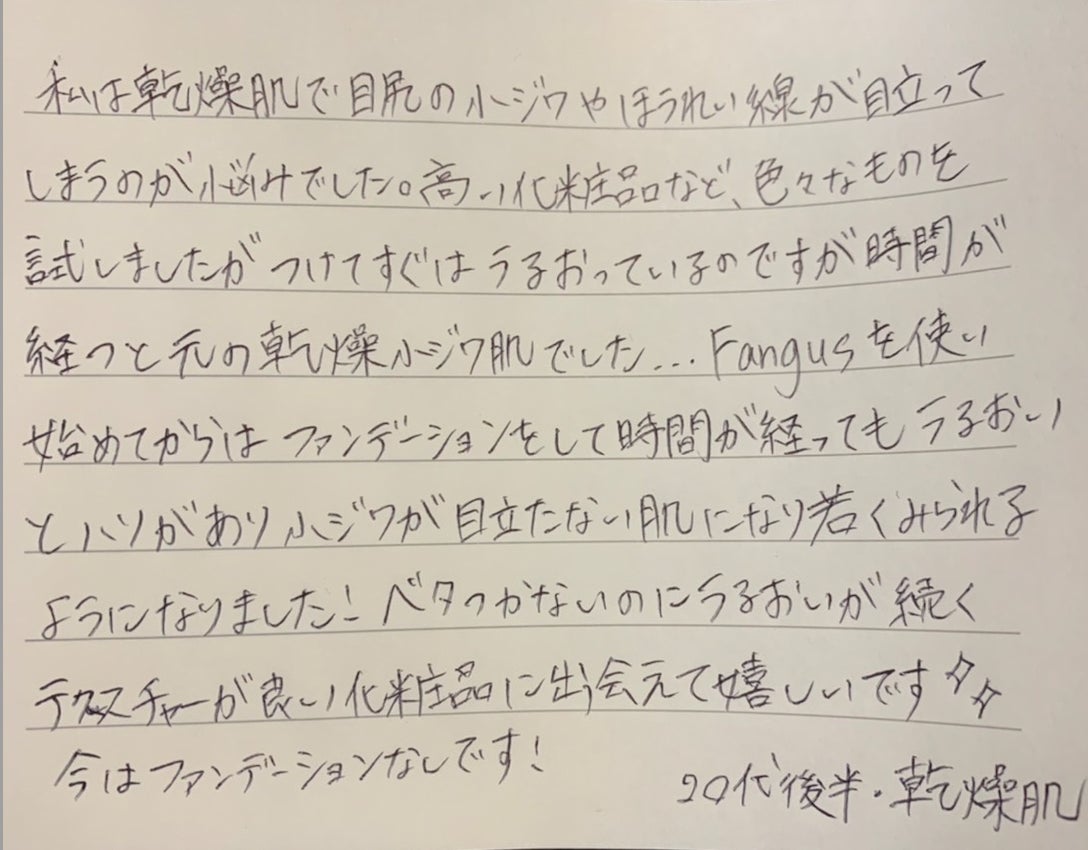 私は乾燥肌で目尻の小ジワやほうれい線が目立って
しまうのが悩みでした。高い化粧品など、色々なものを
試しましたがつけてすぐはうるおっているのですが時間が
経つと元の乾燥小ジワ肌でした...Fangusを使い
始めてからはファンデーションをして時間が経ってもうるおい
とハリがあり小ジワが目立たない肌になり若くみられる
ようになりました!ベタつかないのにうるおいが続く
テクスチャーが良い化粧品に出会えて嬉しいです
今はファンデーションなしです!
20代後半・乾燥肌